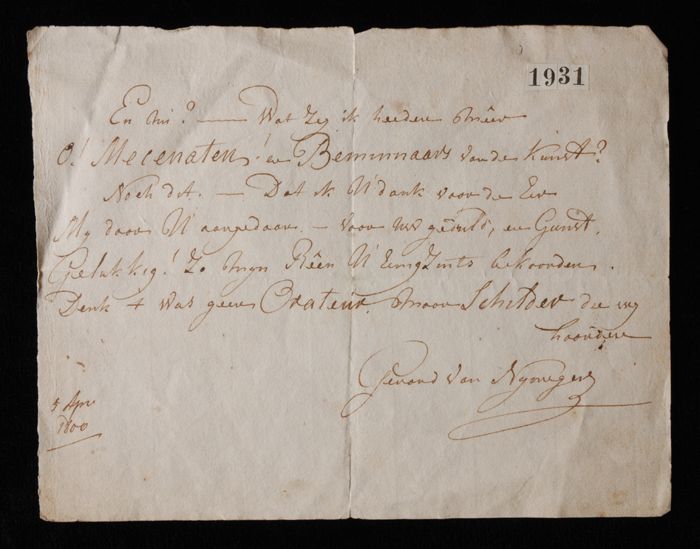 1931
En nu? — Wat zeg ik heeden Meer
O! Mecenaten! en Beminnaars van de Kunst?
Noch dit. — Dat ik U dank voor de Eer
My door U aangedaan. — voor uw geduld, en Gunst,
Gelukkig! Zo Myn Rêen U EenigZints bekoorden.
Denk t was geen Orateur. Maar Schilder die wy
hoorden
Gerard van Nymegen
5 Apr
1800